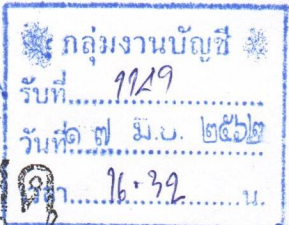 กลุ่มงานบัญชี
รับที่ 1149
วันที่ ๑๗ มิ.ย. ๒๕๖๒
เวลา 16.32 น.